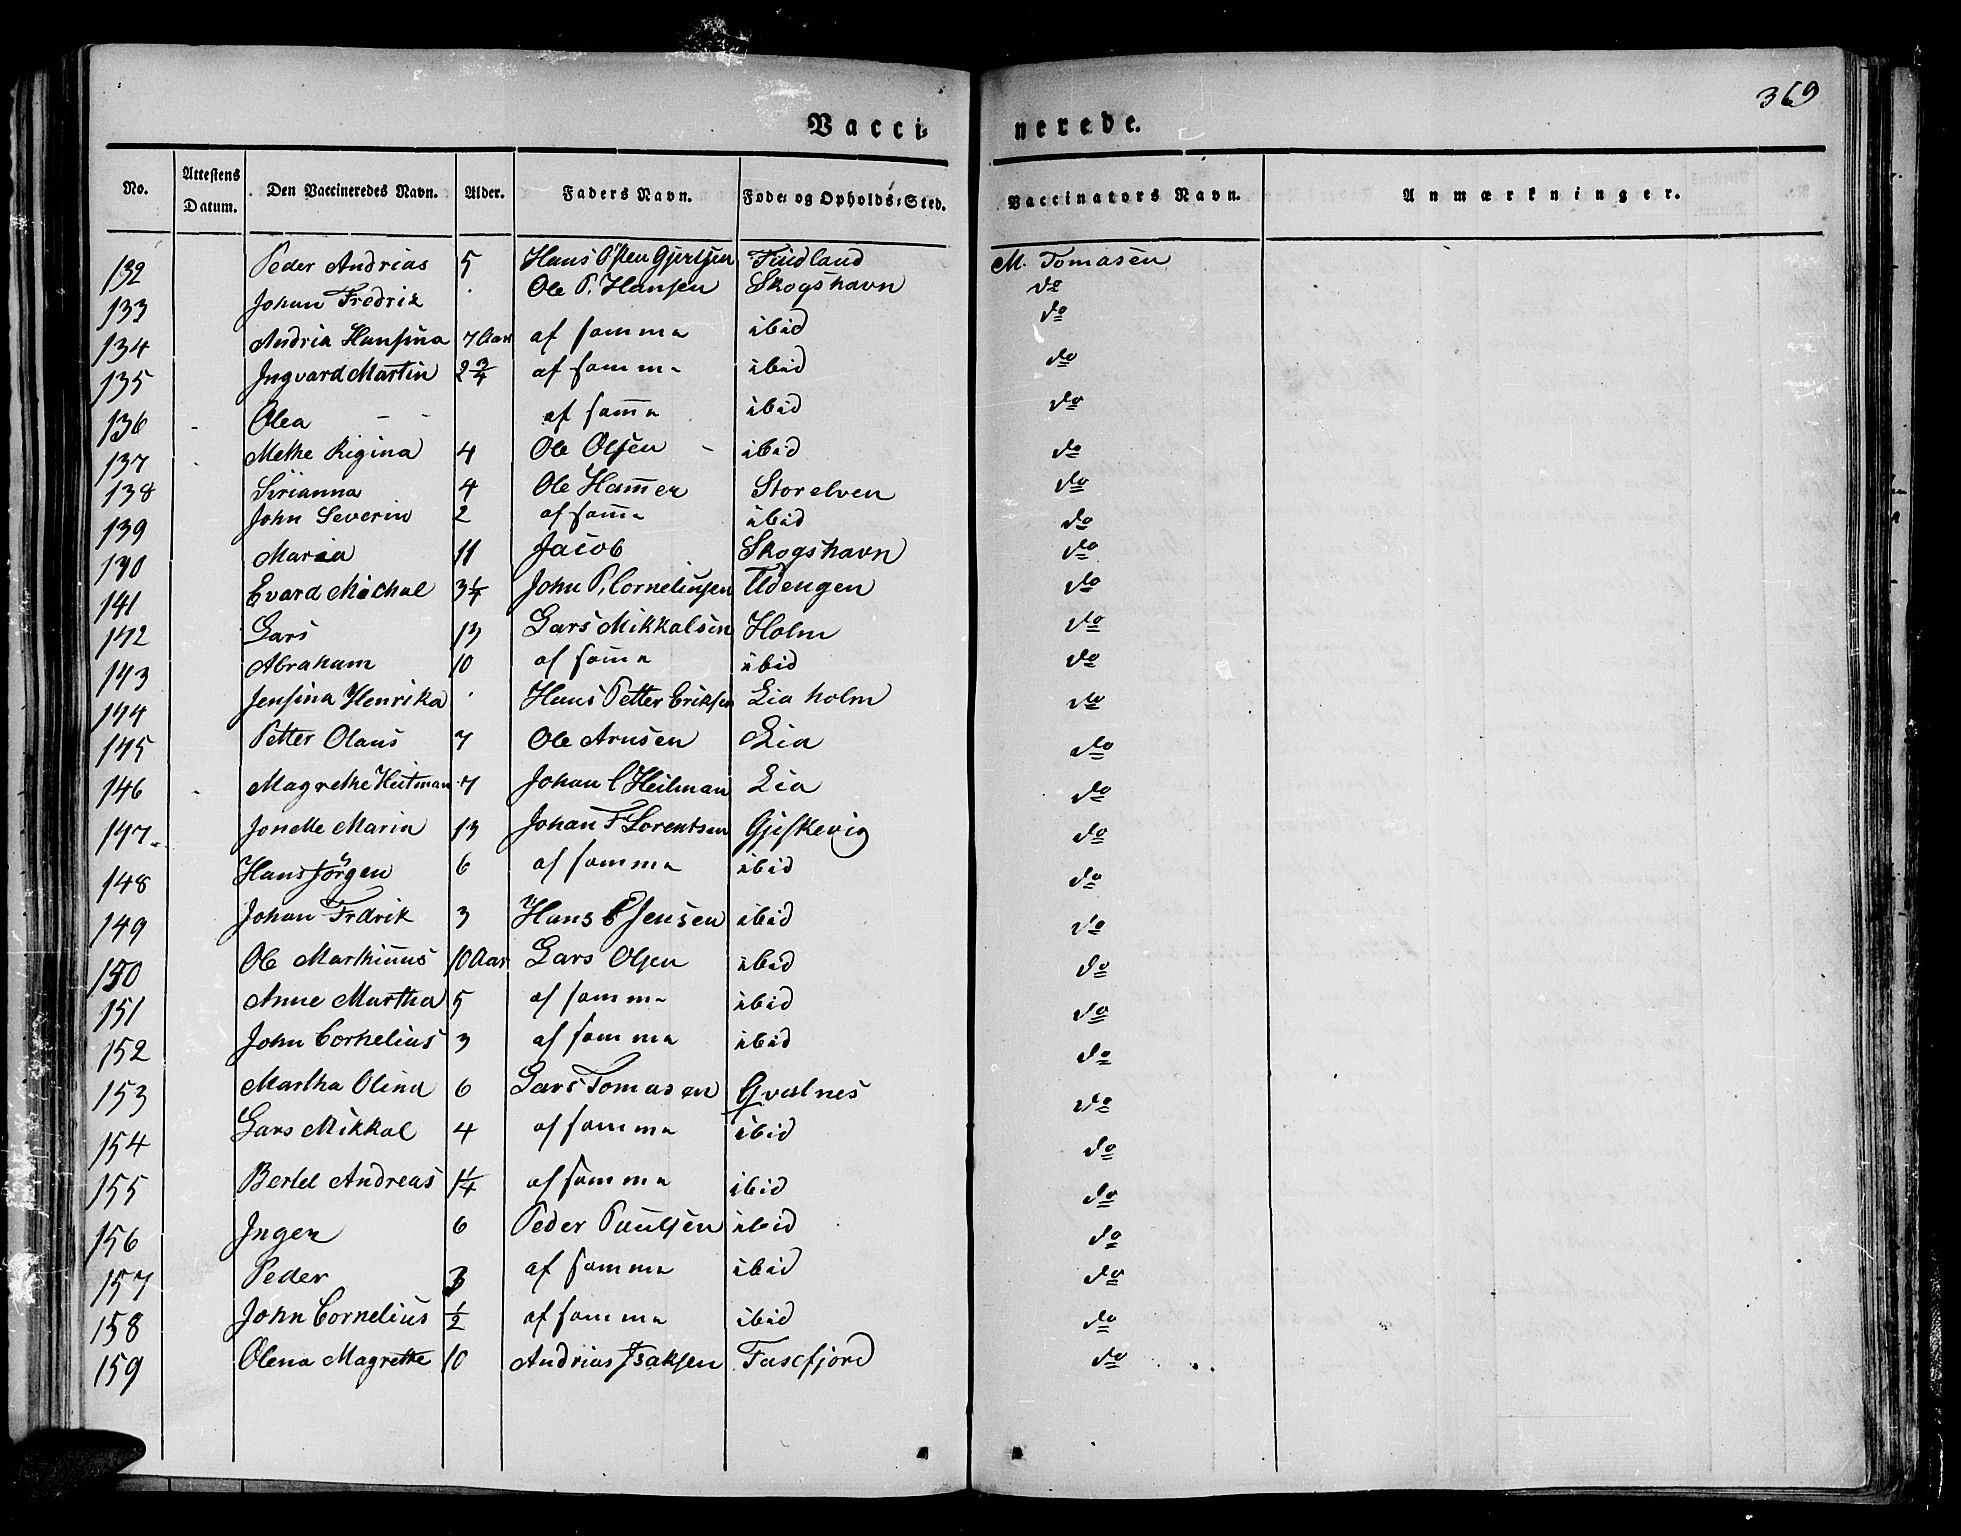 369
Vacci- nerede.
No. Attestens Datum. Den Vaccineredes Navn. Alder. Faders Navn. Føde- og Opholds-Sted. Vaccinators Navn. Anmærkninger.
132 Peder Andrias 5 Hans Østen Gjertsen Findland M. Tomasen
133 Johan Fredrik Ole P. Hansen Skogshavn do
134 Andria Hansina 7 Aar af samma ibid do
135 Ingvard Martin 2 3/4 af samma ibid do
136 Olea af sam̄a ibid do
137 Methe Rigina 4 Ole Olsen ibid do
138 Sirianna 4 Ole Ham̄er Storelven do
139 John Severin 2 af sam̄a ibid do
190 Maria 11 Jacob Skogshavn do
141 Evard Michal 3 1/4 John P. Corneliusen Udengen do
142 Lars 13 Lars Mikkalsen Holm do
143 Abraham 10 af sam̄a ibid do
144 Jensina Henrika Hans Petter Eriksen Lia holm do
145 Petter Olaus 7 Ole Arnsen Lia do
146 Magrethe Heitman 7 Johan C Heitman Lia do
147. Jonette Maria 13 Johan F Lorentsen Gjeskevig do
148 Hans Jörgen 6 af samma ibid do
149 Johan Fredrik 3 Hans E Jensen ibid do
150 Ole Marthinus 10 Aar Lars Olsen ibid do
151 Anne Martha 5 af samma ibid do
152 John Cornelius 3 af samma ibid do
153 Martha Olina 6 Lars Tomasen Qvalnes do
154 Lars Mikkal 4 af samma ibid do
155 Bertel Andreas 1 1/4 af samma ibid do
156 Inger 6 Peder Paulsen ibid do
157 Peder 3 af samma ibid do
158 John Cornelius 1/2 af samma ibid do
159 Olena Magrette 10 Andrias Isaksen Tusefjord do